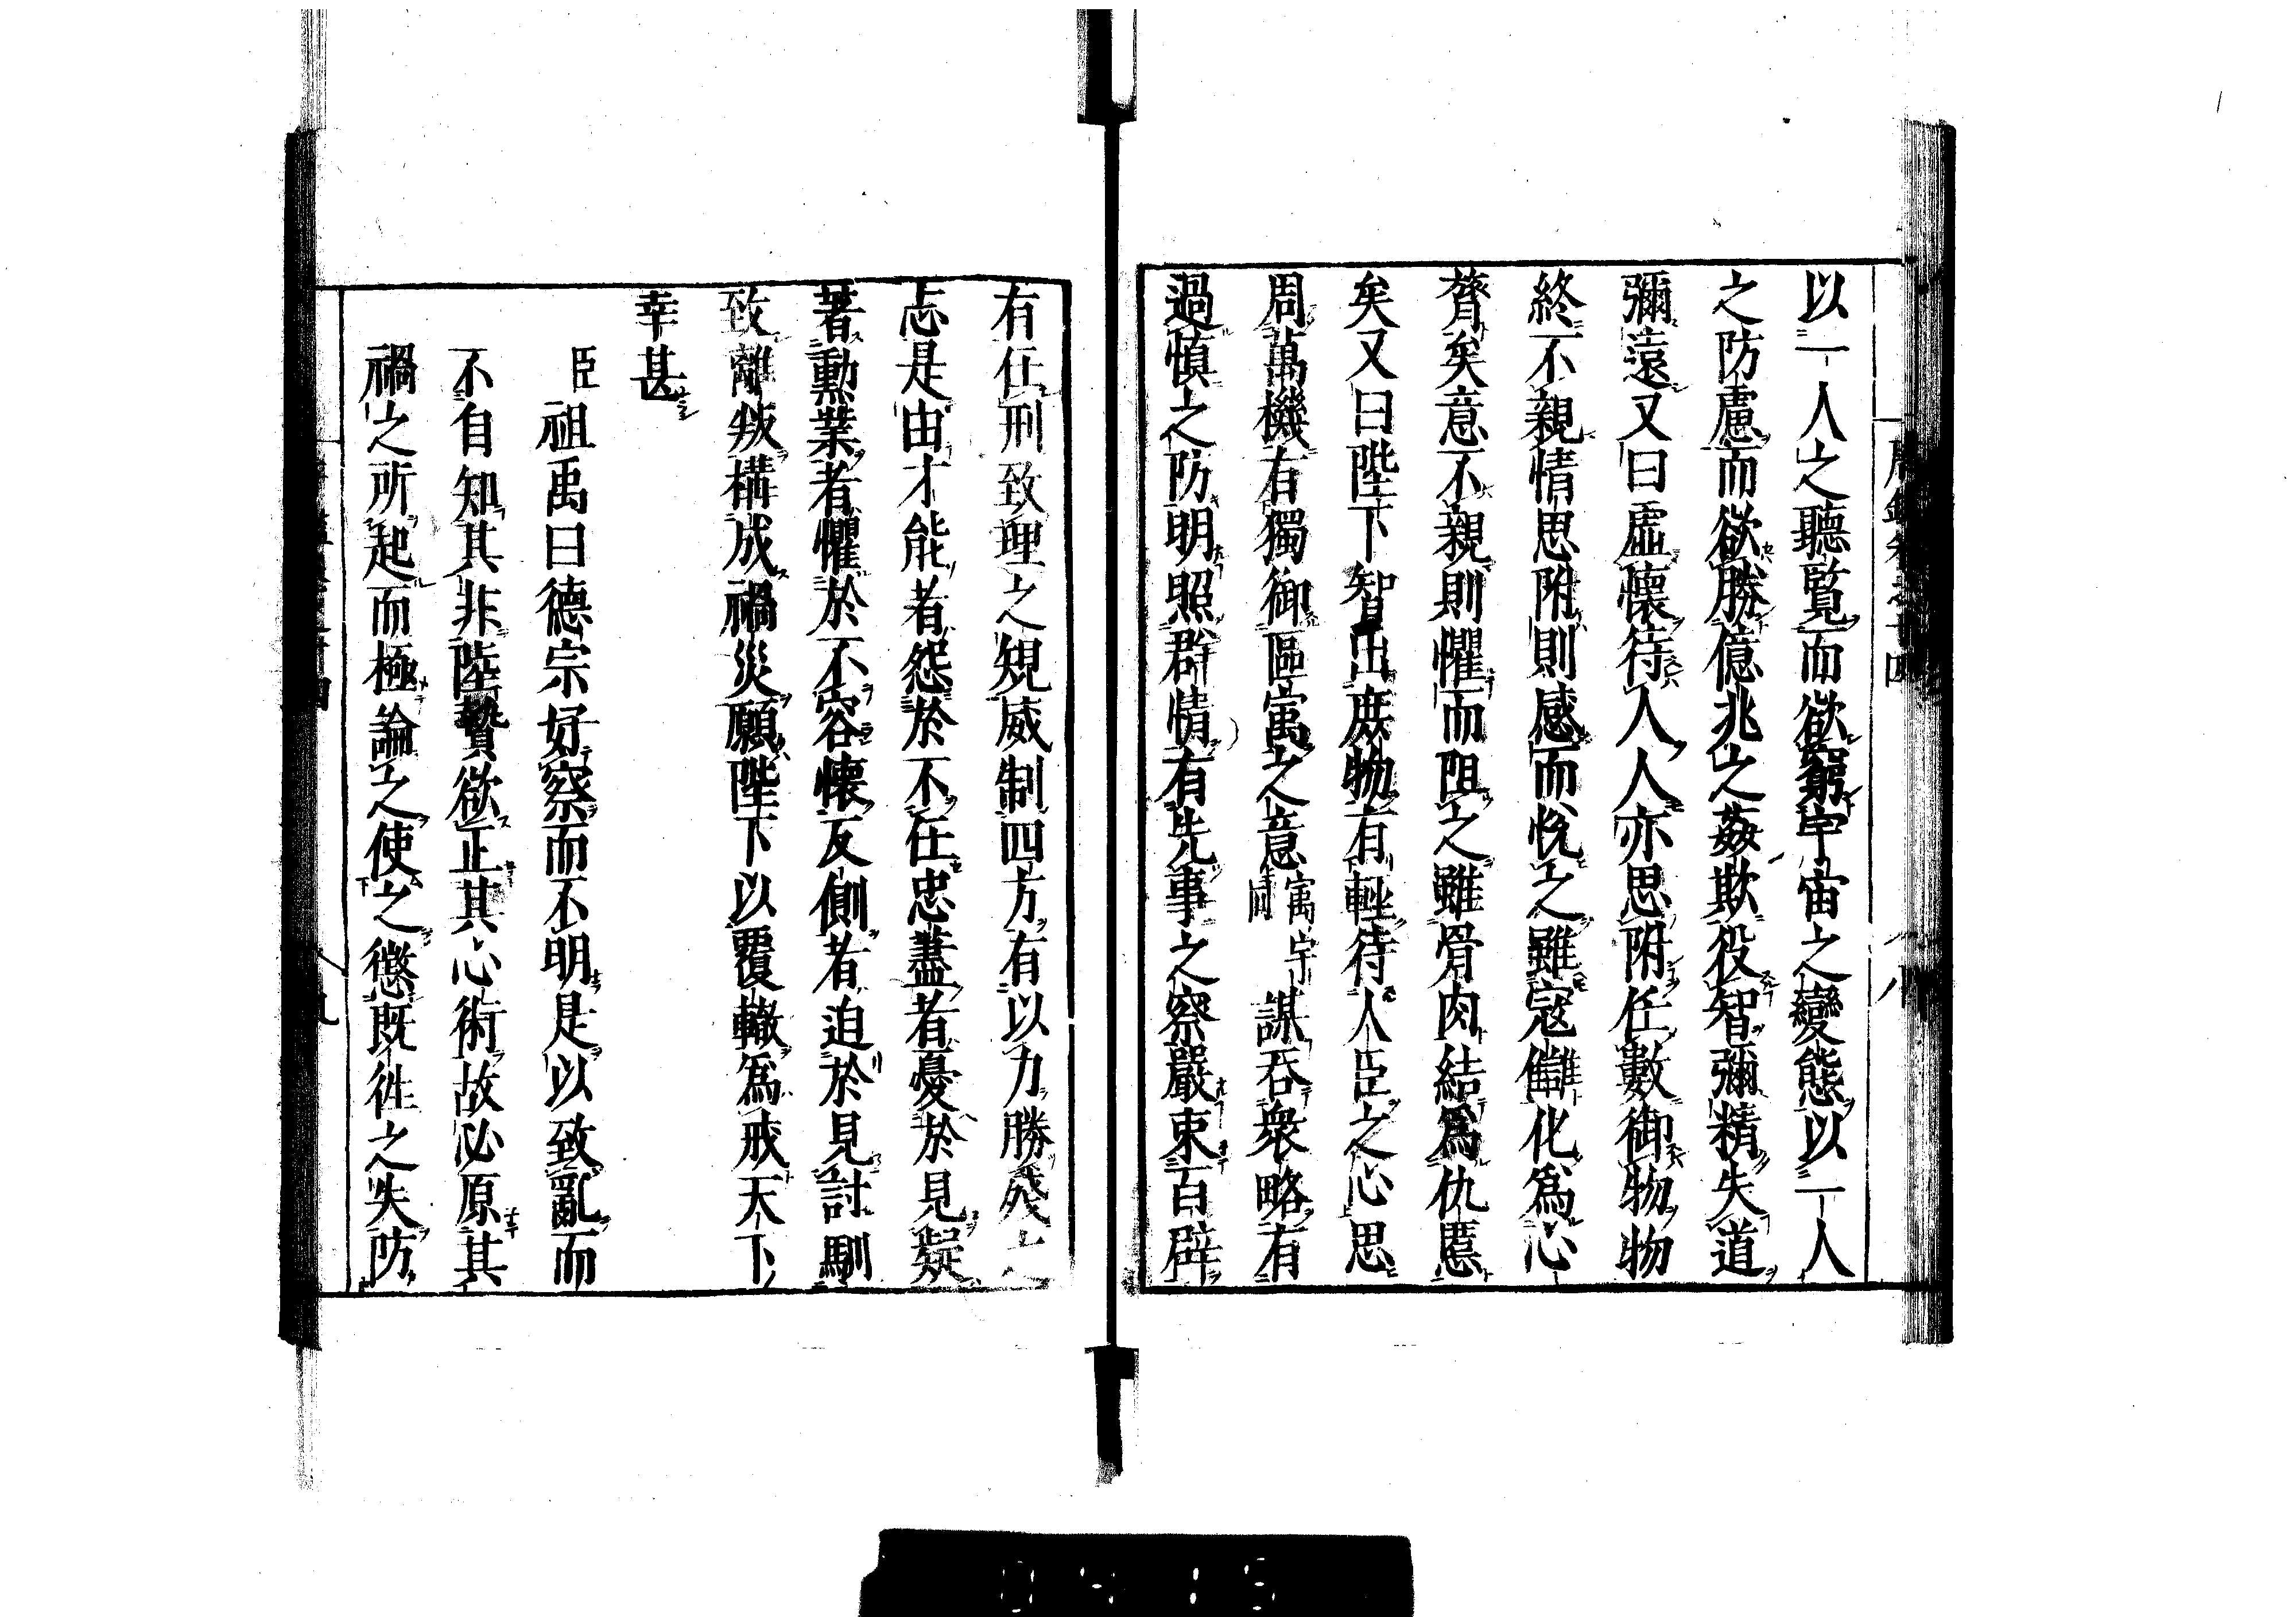 以一人之聽覽而欲窮宇宙之變態以一人
之防慮而欲勝億兆之姦欺役智彌精失道
彌遠又曰虛懷待人人亦思附任數御物物
終不親情思附則感而恱之雖寇讎化爲心
膂矣意不親則懼而阻之雖骨肉結爲仇慝
矣又曰陛下智出庶物有輕待人臣之心思
周萬機有獨御區寓之意寓宇同謀吞衆略有
過愼之防明照群情有先事之察嚴束百辟
有任刑致理之規威制四方有以力勝殘之
志是由才能者怨於不任忠藎者憂於見疑
著勳業者懼於不容懷反側者迫於見討馴
致離叛構成禍災願陛下以覆轍爲戒天下
幸甚
臣祖禹曰德宗好察而不明是以致亂而
不自知其非陸贄欲正其心術故必原其
禍之所起而極論之使之懲旣徃之失防